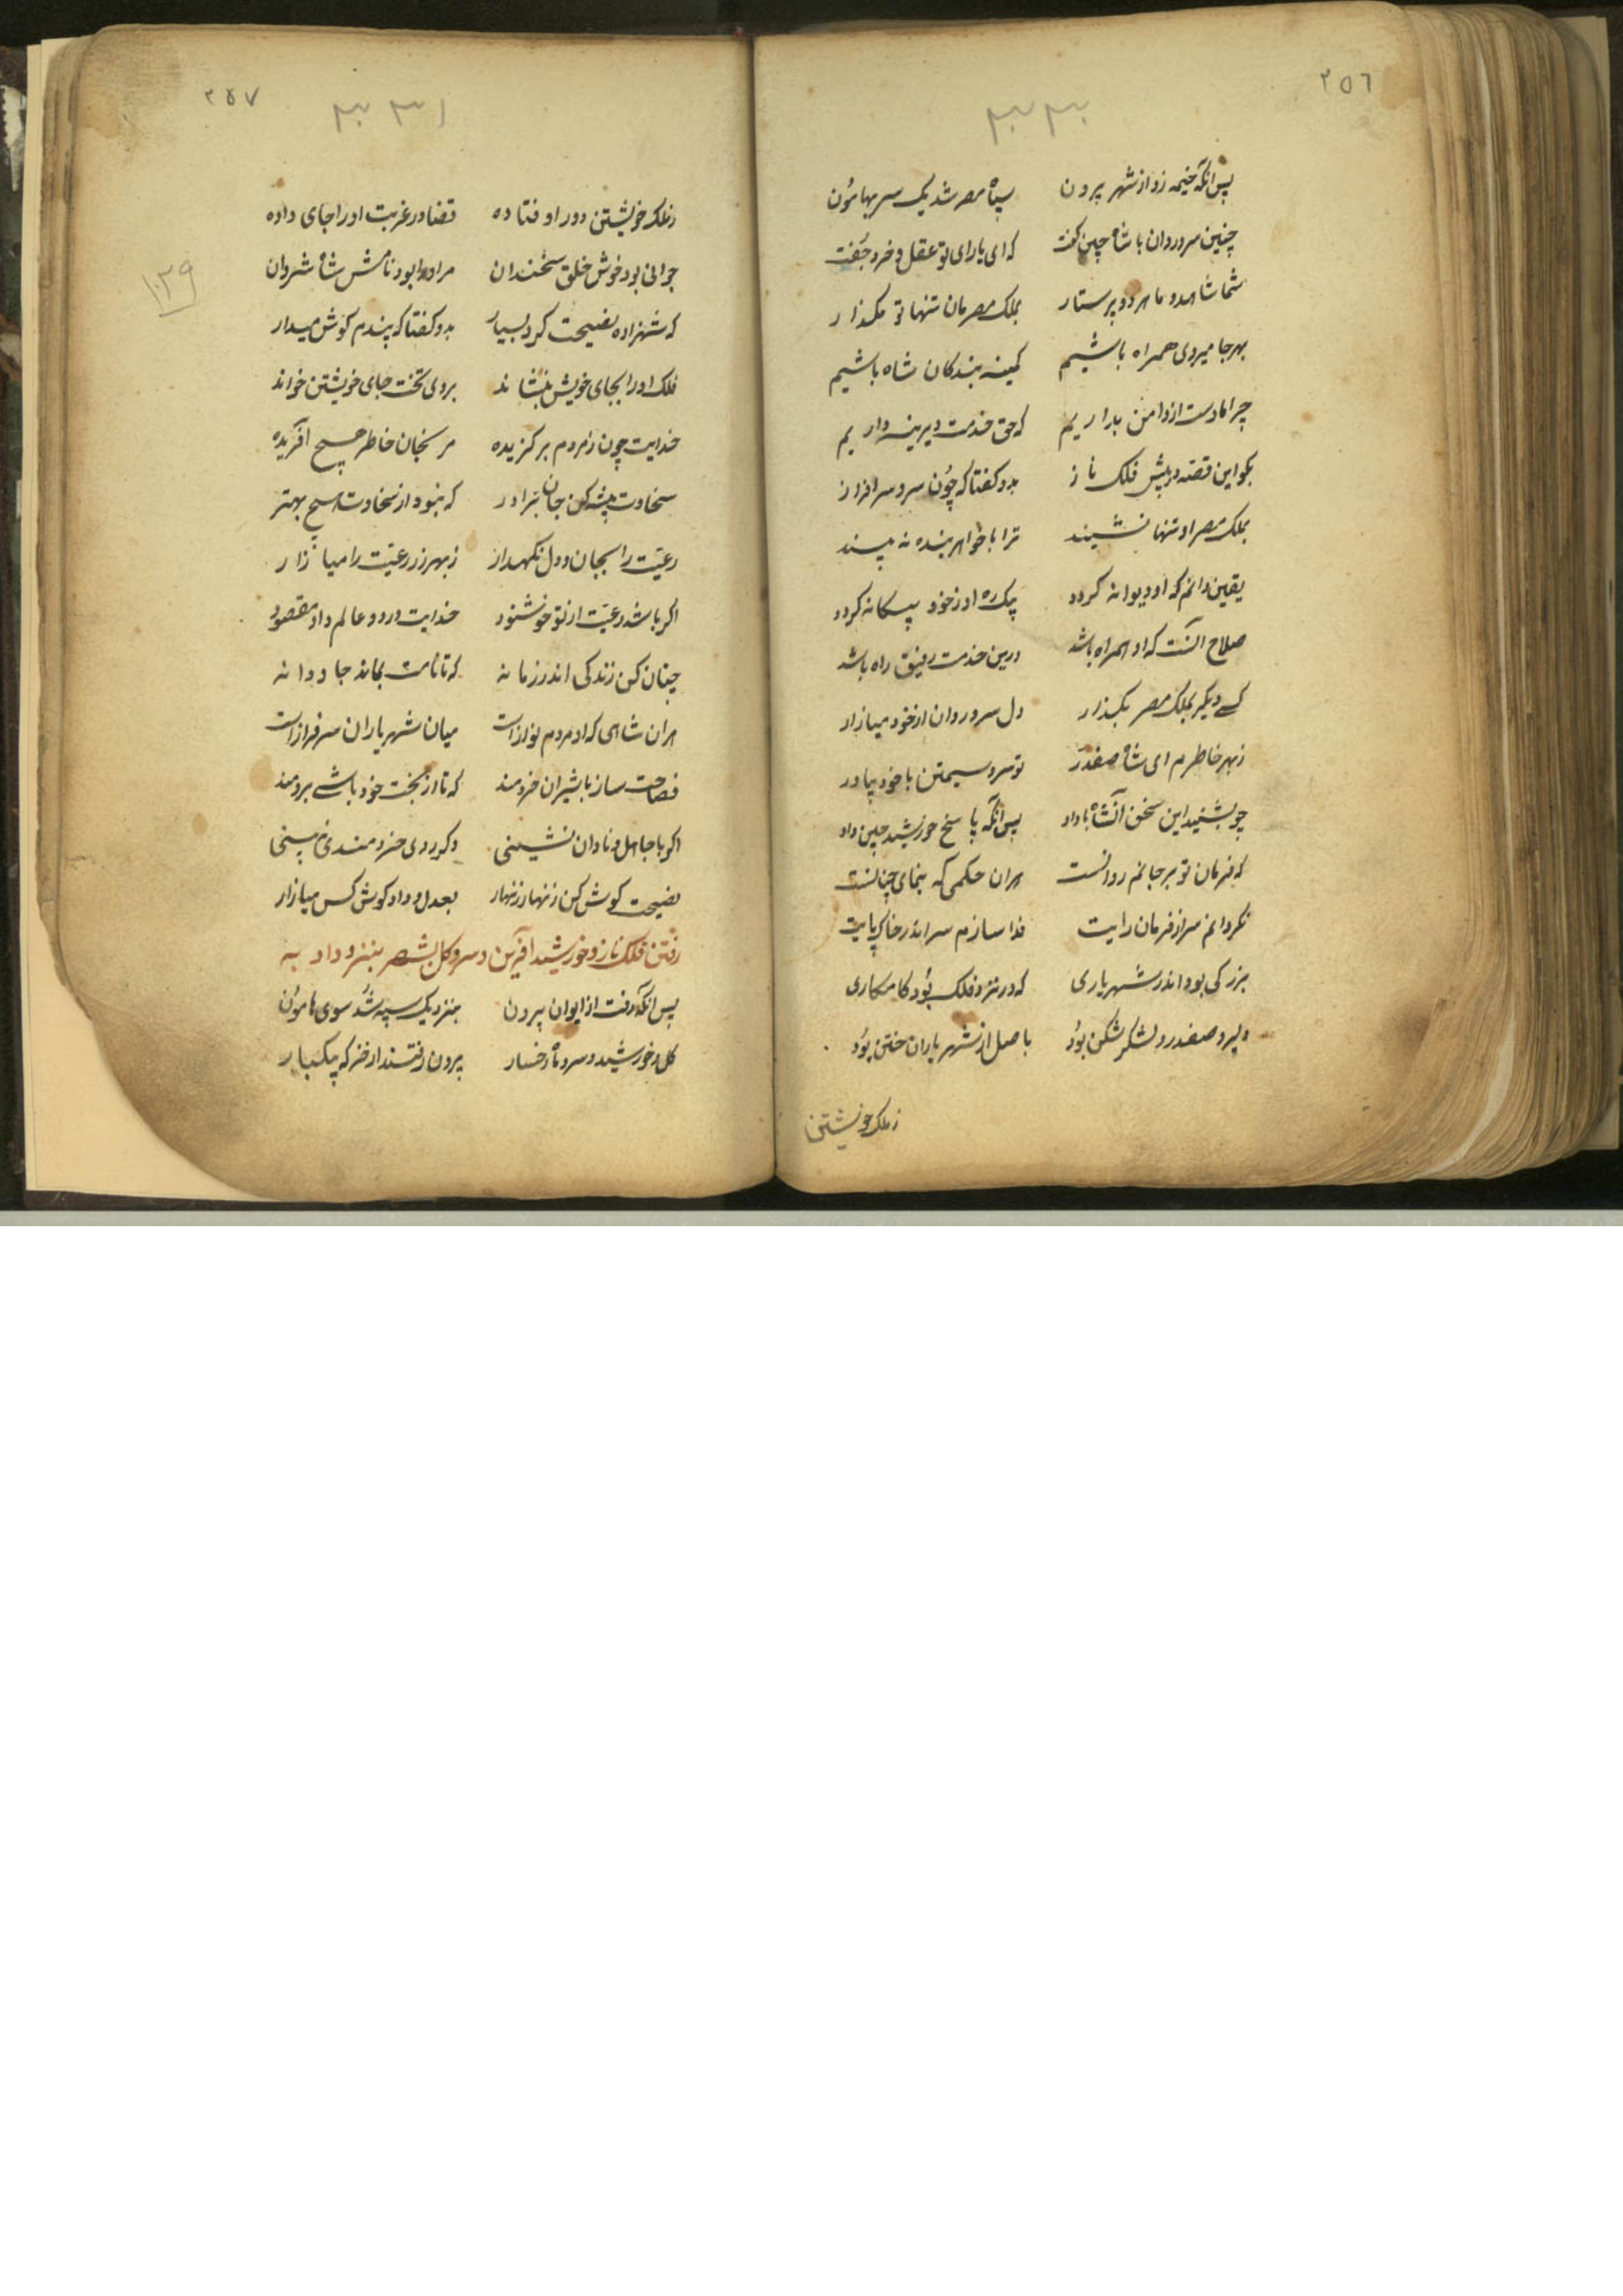 ٢٥٦
٣٣٠
پس آنگه خیمه زد از شهر بیرون سپاه مصر شد یک سر بهامون
چنین سرو روان با شاه چین گفت که ای با رای تو عقل و خرد جفت
شما شاهد و ما هر دو پرستار بملک مصرمان تنها تو مگذار
بهر جا میروی همراه باشیم کمینه بندکان شاه باشیم
چرا ما دست از دامن بداریم که حق خدمت دیرینه داریم
بکو این قصه در پیش فلک ناز بدو کفتا که چون سرو سرافراز
بملک مصر او تنها نشیند ترا با خواهر بنده نه بیند
یقین دانم که او دیوانه کردد یک ره او ز خود بیکانه کردد
صلاح آنست که او همراه باشد درین خدمت رفیق راه باشد
کسے دیکر بملک مصر بکذار دل سرو روان از خود میازار
ز بهر خاطرم ای شاه صفدر تو سرو سیمتن با خود بیاور
چو بشنید این سخن آنشاه با داد پس آنگه پاسخ خورشید چین داد
که فرمان تو بر جانم روانست هران حکمی که بنمای چنانست
نکردانم سر از فرمان و رایت فدا سازم سر اندر خاک پایت
بزرکی بود اندر شهریاری که در نزد فلک بود کامکاری
دلیر و صفدر و لشکر شکن بود باصل از شهریاران ختن بود
ز ملک خویشتن
٢٥٧
٣٣١
١٢٩
ز ملک خویشتن دور اوفتاده قضا در غربت او را جای داده
جوانی بود خوش خلق سخندان مر او را بود نامش شاه شروان
که شهزاده نصیحت کرد بسیار بدو کفتا که پندم کوش میدار
فلک او را بجای خویش بنشاند بروی تخت جای خویشتن خواند
خدایت چون ز مردم بر کزیده مرنجان خاطر هیچ آفریده
سخاوت پیشه کن جان برادر که نبود از سخاوت هیچ بهتر
رعیت را بجان و دل نکهدار ز بهر زر رعیت را میازار
اکر باشد رعیت از تو خوشنود خدایت در دو عالم داد مقصود
چنان کن زندکی اندر زمانه که تا نامت بماند جاودانه
هران شاهی که او مردم نوازاست میان شهریاران سرفرازاست
فصاحت ساز با شیران خردمند که تا از بخت خود باشے برومند
اکر با جاهل و نادان نشینی دکر روی خردمندی نه بینی
نصیحت کوش کن زنهار زنهار بعدل و داد کوش کس میازار
رفتن فلک ناز و خورشید آفرین و سرو و کل بشهر بنزد داد به
پس آنگه رفت از ایوان بیرون بنزدیک سپه شد سوی هامون
کل و خورشید و سرو ماه رخسار بیرون رفتند از خرکه بیکبار